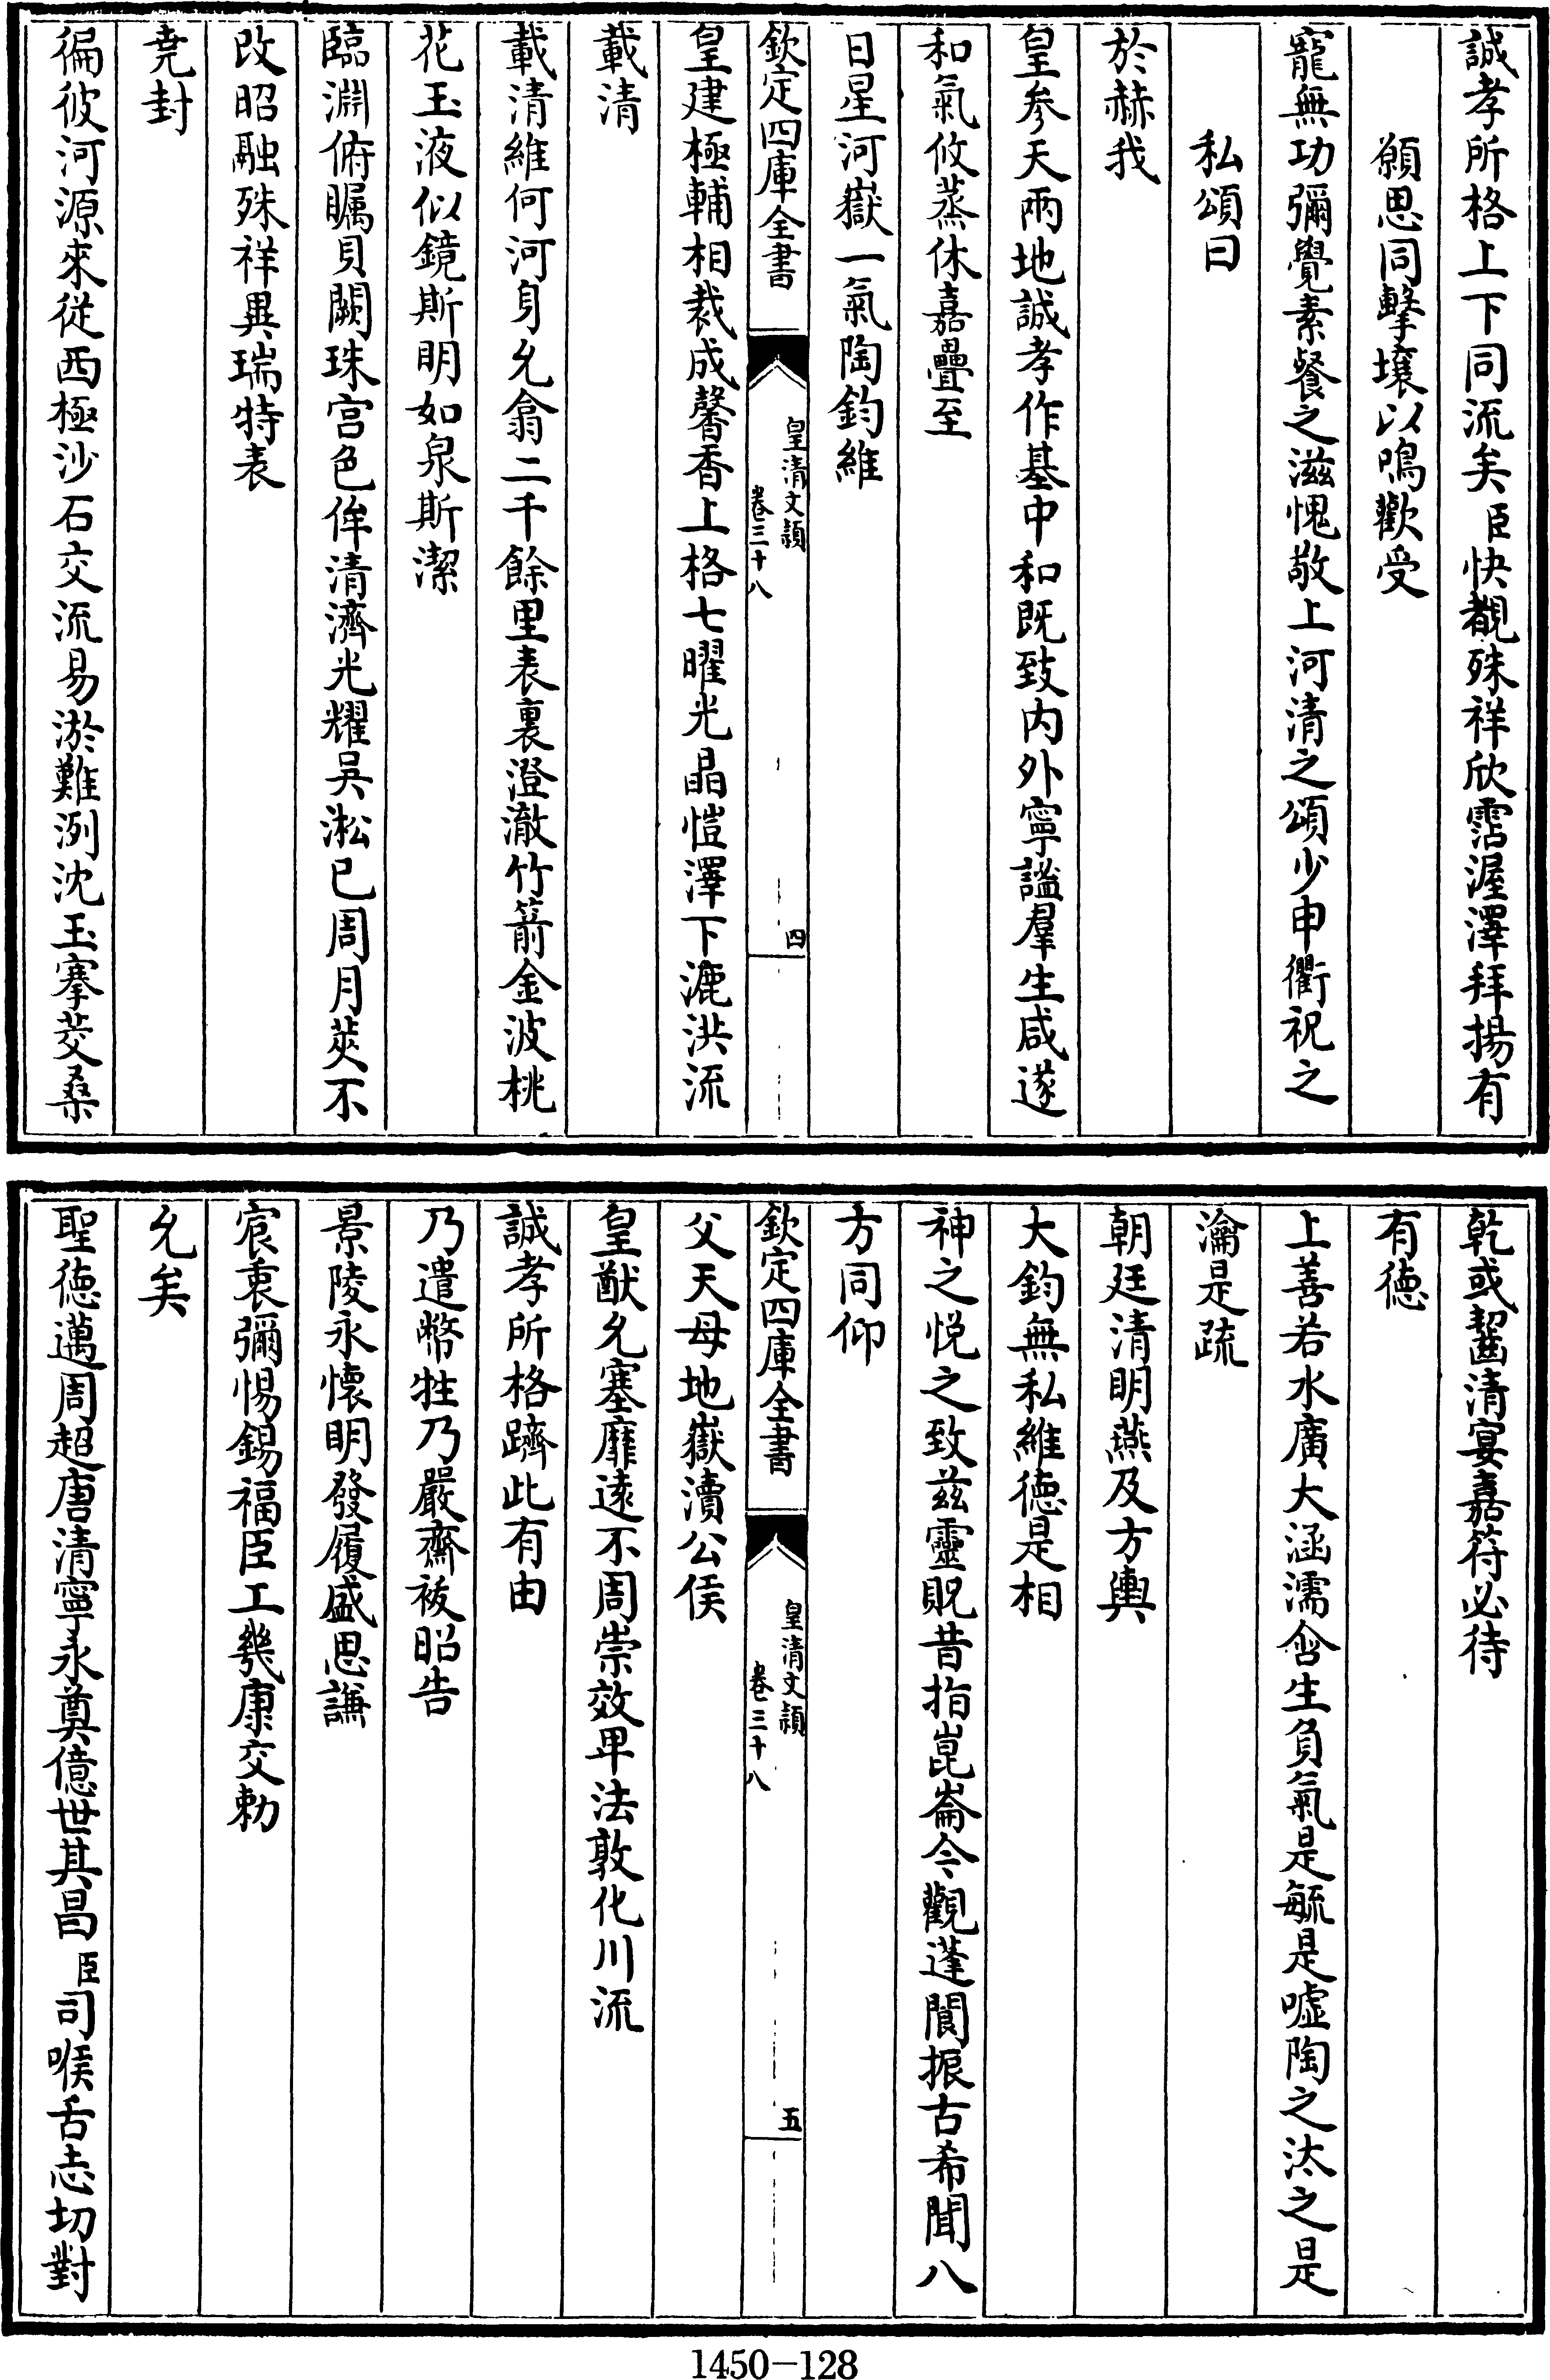 誠孝所格上下同流矣臣快覩殊祥欣霑渥澤拜揚有
願思同擊壤以鳴歡受
寵無功彌覺素餐之滋愧敬上河清之頌少申衢祝之
私頌曰
於赫我
皇參天兩地誠孝作基中和既致内外寧謐羣生咸遂
和氣攸蒸休嘉疊至
日星河嶽一氣陶鈞維
欽定四庫全書
皇清文穎
卷三十八
四
皇建極輔相裁成馨香上格七曜光晶愷澤下漉洪流
載清
載清維何河身允翕二千餘里表裏澄澈竹箭金波桃
花玉液似鏡斯明如泉斯潔
臨淵俯矚貝闕珠宫色侔清濟光耀吳淞已周月莢不
改昭融殊祥異瑞特表
堯封
徧彼河源來從西極沙石交流易淤難冽沈玉搴茭桑
乾或齧清宴嘉符必待
有德
上善若水廣大涵濡含生負氣是毓是噓陶之汰之是
瀹是疏
朝廷清明燕及方輿
大鈞無私維德是相
神之悦之致兹靈貺昔指崑崙今觀蓬閬振古希聞八
方同仰
欽定四庫全書
皇清文穎
卷三十八
五
父天母地嶽瀆公侯
皇猷允塞靡遠不周崇效卑法敦化川流
誠孝所格躋此有由
乃遣幣牲乃嚴齋祓昭告
景陵永懷明發履盛思謙
宸衷彌惕錫福臣工幾康交勅
允矣
聖德邁周超唐清寧永奠億世其昌臣司喉舌志切對
1450-128